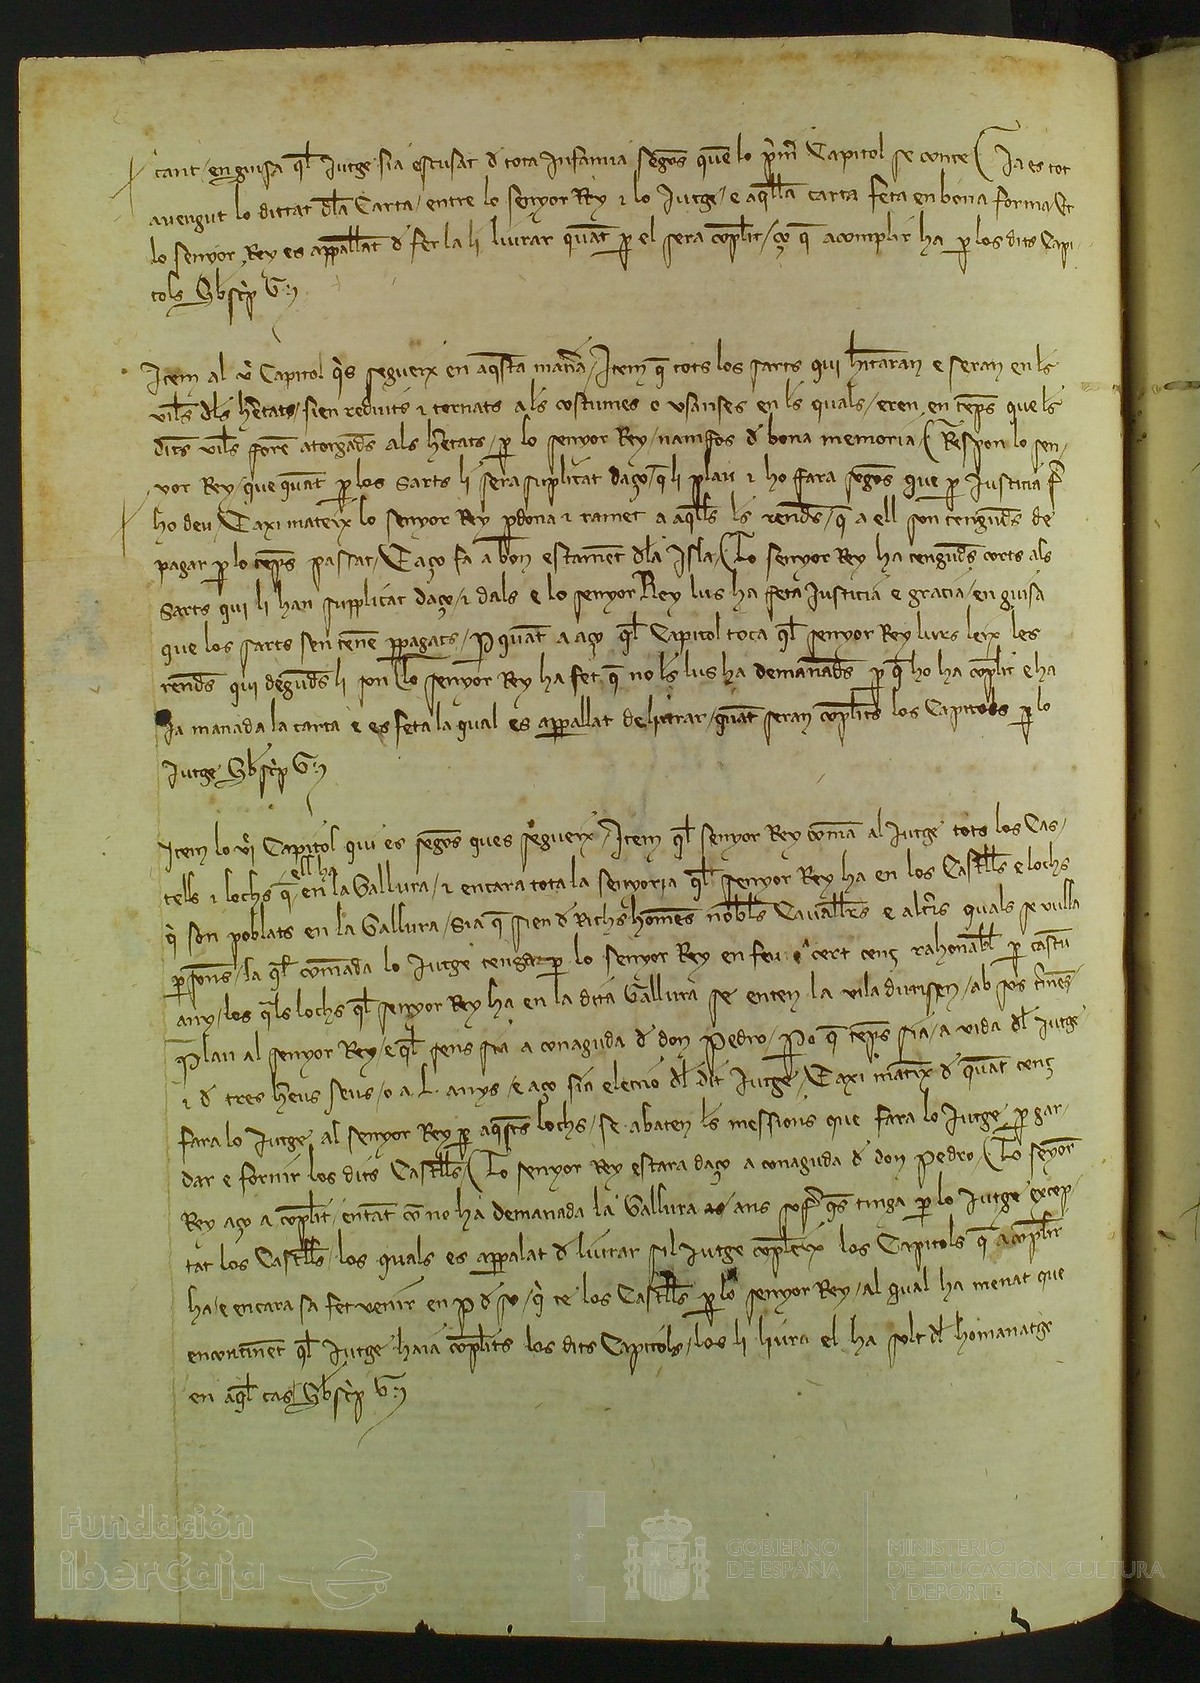 cant / en guisa q̄l Jutge sia escusat d̄ tota Infamia segōs que lo p̄m̄ Capitol se conte ( Ja es tot
auengut lo dittat dl̄a Carta / entre lo senyor Rey ⁊ lo Jutge / e aq̄lla carta feta en bona forma Et
lo senyor Rey es appallāt d̄ fer la li liurar quāt p̄ el sera cōplit / ço q̄ acomplir ha p̄ los dits Capi-
tols
Item al v̄ Capitol q̄s segueix en aq̄sta man̄a / Item q̄ tots los sarts qui h̄itaran e seran en l̄s
vil̄s dl̄s h̄etats / sien reduits ⁊ tornats als costumes o vsanses en l̄s quals / eren en tēps que l̄s
dit̄s vil̄s forē atorgad̄s als h̄etats / p̄ lo senyor Rey / namfos d̄ bona memoria / ( Respon lo sen-
yor Rey / que quāt p̄ los Sarts li sera suplicat daço / q̄ li plau ⁊ ho fara segōs que p̄ Justicia f̄
ho deu / E axi mateix lo senyor Rey p̄dona ⁊ ramet a aq̄lls l̄s rend̄s / q̄ a ell son tengud̄s de
pagar p̄ lo tēps passat / E aço fa a bon estamēt dl̄a Isla / ( Lo senyor Rey ha tengud̄s corts als
Sarts qui li han supplicat daço / ⁊ dals e lo senyor Rey lus ha feta Justicia e gracia / en guisa
que los sarts sen tenē p̄ pagats / P quāt a aço q̄l Capitol toca q̄l senyor Rey lurs leix les
rend̄s qui degud̄s li son ( Lo senyor Rey ha fet q̄ no l̄s lus ha demanad̄s p̄ q̄ ho ha cōplit e ha
Ja manada la carta e es feta la qual es appallat de liurar / quāt seran cōplits los Capitols p̄ lo
Jutge
Item lo vj̄ Capitol qui es segōs ques segueix / Item q̄l senyor Rey comā al Jutge tots los Cas-
tells ⁊ lochs q̄ ell ha en la Gallura / ⁊ encara tota la senyoria q̄l senyor Rey ha en los Castl̄ls e lochs
q̄ son poblats en la Gallura / Sia q̄ sien d̄ Richs homēs nobl̄s Cauall̄rs e altr̄s quals se vulla
p̄sones / la q̄l comāda lo Jutge tenga p̄ lo senyor Rey en feu a cert cenç rahonabl̄ p̄ cascū
any / los q̄ls lochs q̄l senyor Rey ha en la dita Gallura se enten la vila durisen / ab sos t̄mēs
Plau al senyor Rey / e q̄l sens sia a conaguda d̄ don Pedro / Po q̄ tēps sia / a vida dl̄ Jutge
⁊ d̄ tres hereus seus / o a .L. anys / e aço sia electio dl̄ dit Jutge / E axi matix d̄ quāt cenç
fara lo Jutge al senyor Rey p̄ aq̄sts lochs / se abaten l̄s messions que fara lo Jutge p̄ gar-
dar e fornir los dits Castl̄ls / ( Lo senyor Rey estara daço a conaguda d̄ don Pedro / ( Lo seyor
Rey aço a cōplit / entāt cō no ha demanada la Gallura / ans sofr̄ q̄s tinga p̄ lo Jutge excep-
tat los Castl̄ls / los quals es appalat d̄ liurar sil Jutge cōpleix los Capitols q̄ a cōplir
ha / e encara sa fet venir en P d̄ so / q̄ te los Castl̄ls p̄ lo senyor Rey / al qual ha menat que
encontinēt q̄l Jutge haia cōplits los dits Capitols / los li liura el ha solt dl̄ homanatge
en aq̄l cas
Fundación
iberCaja
GOBIERNO
DE ESPAÑA
MINISTERIO
DE EDUCACIÓN, CULTURA
Y DEPORTE